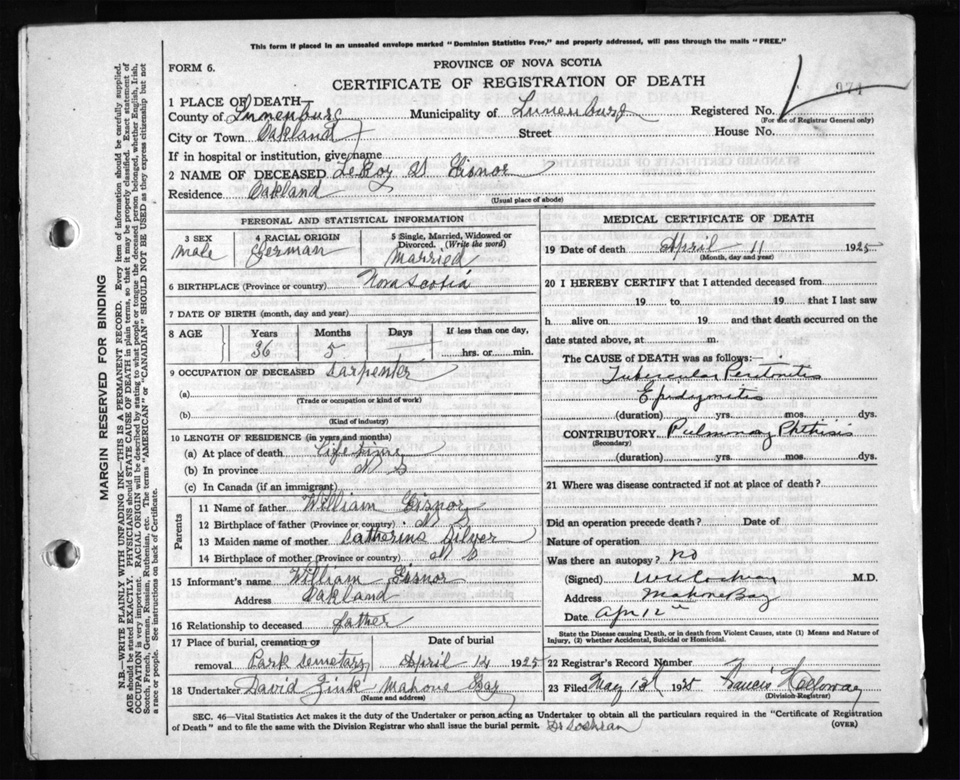 This form if placed in an unsealed envelope marked "Dominion Statistics Free," and properly addressed, will pass through the mails "FREE."
FORM 6.
PROVINCE OF NOVA SCOTIA
CERTIFICATE OF REGISTRATION OF DEATH
974
1 PLACE OF DEATH
County of Lunenburg Municipality of Lunenburg Registered No.
(For use of Registrar General only)
City or Town Oakland Street House No.
If in hospital or institution, give name
2 NAME OF DECEASED LeRoy Eisnor
Residence Oakland
(Usual place of abode)
PERSONAL AND STATISTICAL INFORMATION
3 SEX
Male
4 RACIAL ORIGIN
German
5 Single, Married, Widowed or Divorced. (Write the word)
Married
6 BIRTHPLACE (Province or country) Nova Scotia
7 DATE OF BIRTH (month, day and year)
8 AGE Years Months Days If less than one day,
36 5 hrs. or min.
9 OCCUPATION OF DECEASED Carpenter
(a)
(Trade or occupation or kind of work)
(b)
(Kind of industry)
10 LENGTH OF RESIDENCE (in years and months)
(a) At place of death Life time
(b) In province N S
(c) In Canada (if an immigrant)
Parents
11 Name of father William Eisnor
12 Birthplace of father (Province or country) N S
13 Maiden name of mother Catharine Silver
14 Birthplace of mother (Province or country) N S
15 Informant's name William Eisnor
Address Oakland
16 Relationship to deceased father
17 Place of burial, cremation or Date of burial
removal Park cemetary April 14 1925
18 Undertaker David Zink Mahone Bay
(Name and address)
MEDICAL CERTIFICATE OF DEATH
19 Date of death April 11 1925
(Month, day and year)
20 I HEREBY CERTIFY that I attended deceased from
19 to 19 that I last saw
h alive on 19 and that death occurred on the
date stated above, at m.
The CAUSE of DEATH was as follows:—
Tubercular Peritonitis
Epidymitis
(duration) yrs. mos. dys.
CONTRIBUTORY Pulmonay Phthisis
(Secondary)
(duration) yrs. mos. dys.
21 Where was disease contracted if not at place of death?
Did an operation precede death? Date of
Nature of operation
Was there an autopsy? no
(Signed) Cochran M.D.
Address Mahone Bay
Date Apr 12th
State the Disease causing Death, or in death from Violent Causes, state (1) Means and Nature of Injury, (2) whether Accidental, Suicidal or Homicidal.
22 Registrar's Record Number
23 Filed May 1925 Francis Holloway
(Division Registrar)
SEC. 46—Vital Statistics Act makes it the duty of the Undertaker or person acting as Undertaker to obtain all the particulars required in the "Certificate of Registration
of Death" and to file the same with the Division Registrar who shall issue the burial permit. Dr Cochran (OVER)
MARGIN RESERVED FOR BINDING
N.B.—WRITE PLAINLY WITH UNFADING INK—THIS IS A PERMANENT RECORD. Every item of information should be carefully supplied.
AGE should be stated EXACTLY. PHYSICIANS should STATE CAUSE OF DEATH in plain terms, so that it may be properly classified. Exact statement of
OCCUPATION is very important. RACIAL ORIGIN will be described by stating to what people or tongue the deceased person belonged, whether English, Irish,
Scotch, French, German, Russian, Ruthenian, etc. The terms "AMERICAN" or "CANADIAN" SHOULD NOT BE USED as they express citizenship but not
a race or people. See instructions on back of Certificate.